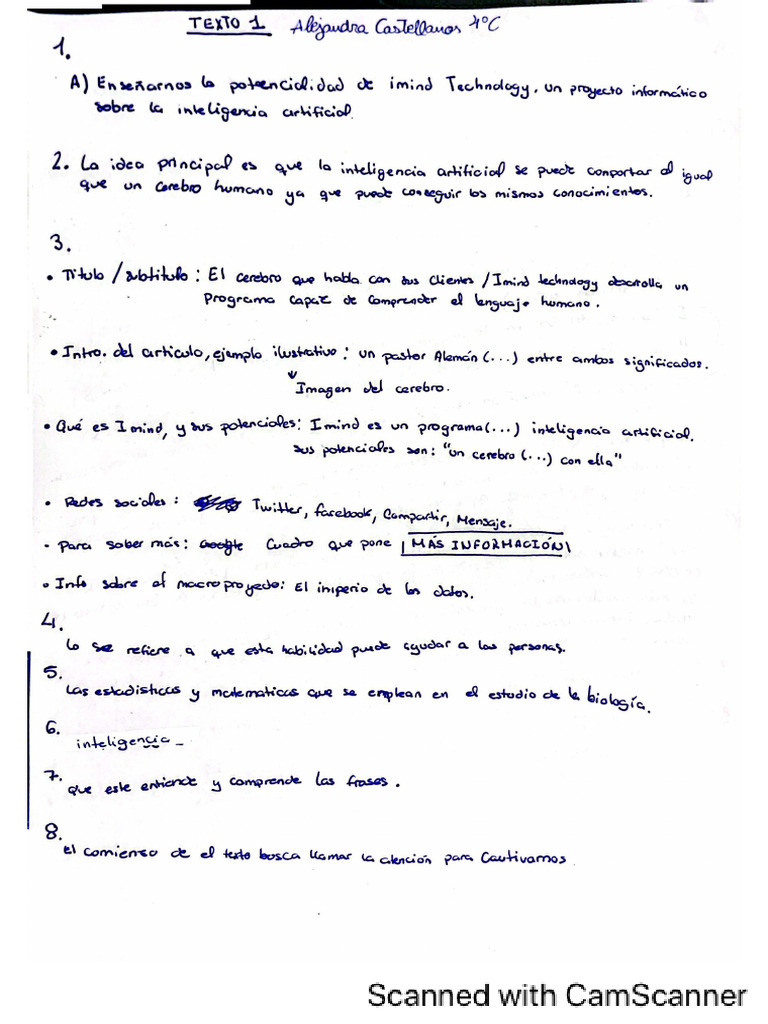 TEXTO 1 Alejandra Castellanos 4ºC
1.
A) Enseñarnos la potencialidad de imind Technology, un proyecto informático
sobre la inteligencia artificial.
2. La idea principal es que la inteligencia artificial se puede comportar al igual
que un cerebro humano ya que puede conseguir los mismos conocimientos.
3.
• Título / subtítulo: El cerebro que habla con sus clientes / Imind technology desarrolla un
Programa capaz de comprender el lenguaje humano.
• Intro. del artículo, ejemplo ilustrativo: un pastor Alemán (...) entre ambos significados.
Imagen del cerebro.
• Qué es Imind, y sus potenciales: Imind es un programa (...) inteligencia artificial.
sus potenciales son: "un cerebro (...) con ella"
• Redes sociales: Twitter, facebook, Compartir, Mensaje.
- Para saber más: Google Cuadro que pone | MÁS INFORMACIÓN |
• Info sobre el macroproyecto: El imperio de los datos.
4.
Lo se refiere a que esta habilidad puede ayudar a las personas.
5.
Las estadísticas y matemáticas que se emplean en el estudio de la biología.
6.
inteligencia -
7.
que este entiende y comprende las frases.
8.
El comienso de el texto busca llamar la atención para Cautivarnos.
Scanned with CamScanner